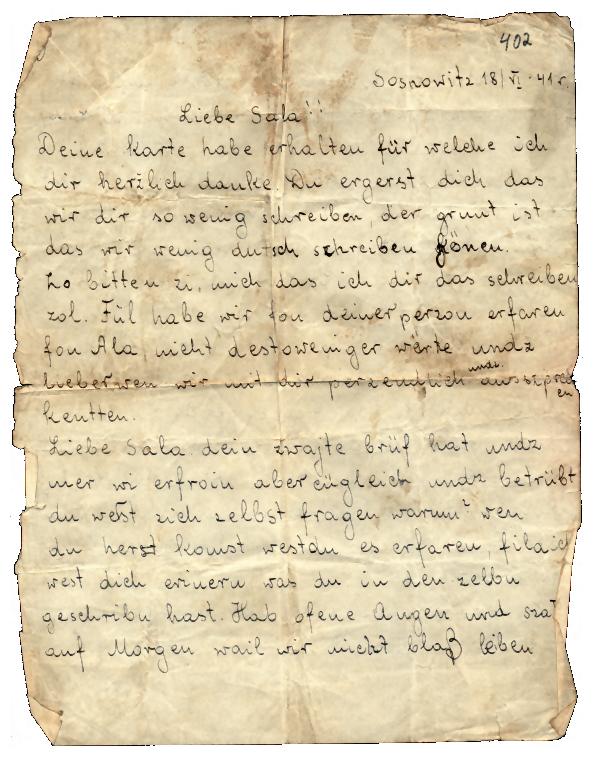 402
Sosnowitz 18/VI - 41 r.
Liebe Sala!!
Deine karte habe erhalten für welche ich
dir herżlich danke. Du ergerst dich das
wir dir so wenig schreiben, der grunt ist
das wir wenig dutsch schreiben könen.
Zo bitten zi, mich das ich dir das schreiben
zol. Fül habe wir fon deiner perzon erfaren
fon Ala, nicht destoweniger wërte undz
lieber wen wir mit dir perzendlich undz ausszprechen
kentten.
Liebe Sala dein zwajte brüf hat undz
mer wi erfroin aber cügleich undz betrübt
du west zich zelbst fragen warum? wen
du herst komst westdu es erfaren, filaich
west dich erinern was du in den zelbn
geschribn hast. Hab ofene Augen und sza
auf Morgen wail wir nicht blaß leben